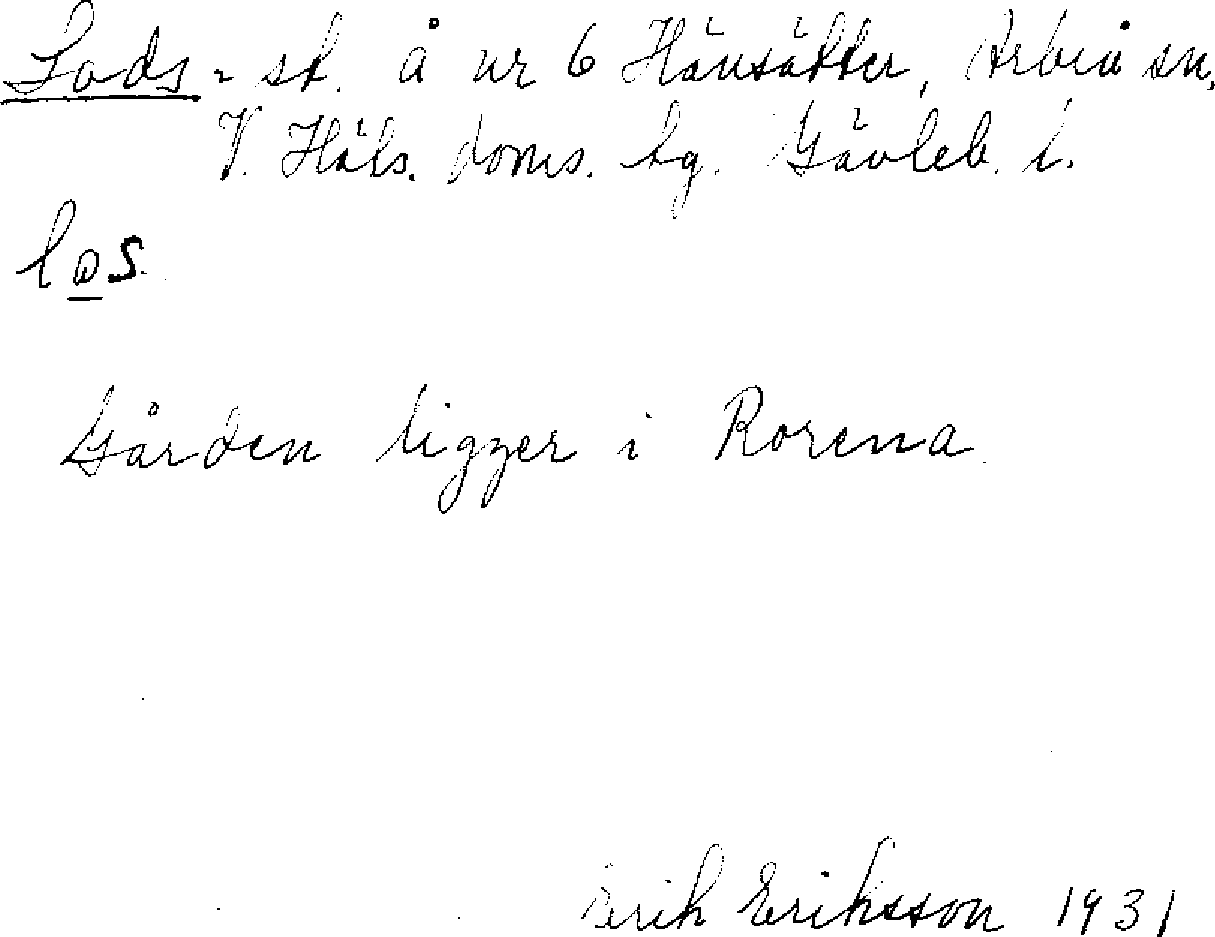 Lods - st. å nr 6 Hänsätter, Arbrå sn,
V. Häls. doms. bg. Gävleb. l.
los
Gården ligger i Rorena
Erik Eriksson 1931